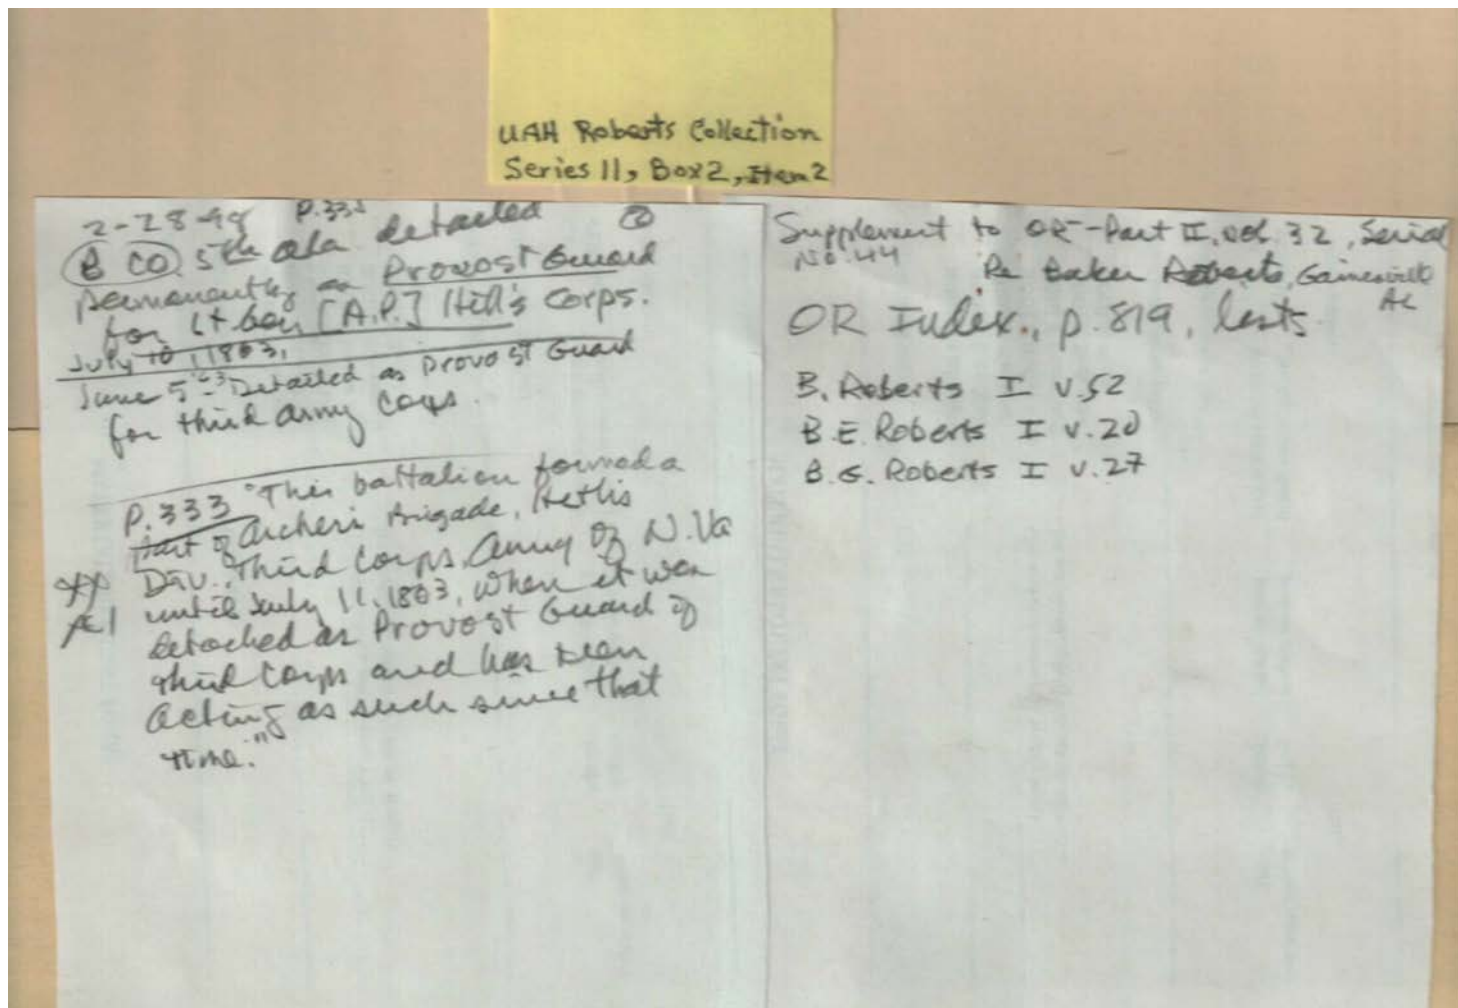 UAH Roberts Collection
Series 11, Box 2, Item 2
2-28-98 P.332
B CO 5th Ala detailed
permanently as Provost Guard
for Lt Gen [A.P.] Hill's Corps.
July 10, 1863,
June 5 - 63 Detailed as Provost Guard
for third Army Corps.
P. 333 "This battalion formed a
part of Archer's Brigade, Heth's
Div., Third Corps, Army of N. Va
until July 11, 1863, when it was
detached as Provost Guard of
third Corps and has been
acting as such since that
time."
Supplement to OR - Part II, vol. 32, Serial
No. 44
Re Baker Roberts, Gainesville
AL
OR Index., p. 819, lists
B. Roberts I v. 52
B.E. Roberts I v. 20
B.G. Roberts I v. 27